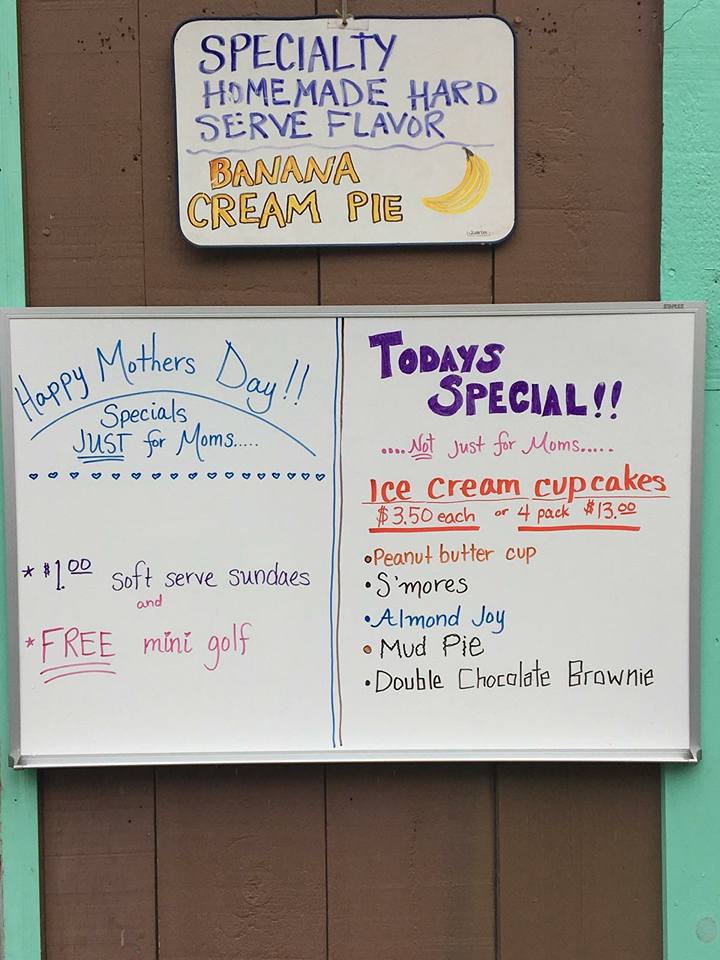 SPECIALTY
HOMEMADE HARD
SERVE FLAVOR
BANANA
CREAM PIE
Happy Mothers Day!!
Specials
JUST for Moms.....
* $1.00 soft serve sundaes
and
* FREE mini golf
STAPLES
TODAYS
SPECIAL!!
....Not just for Moms.....
Ice cream cupcakes
$3.50 each or 4 pack $13.00
•Peanut butter cup
•S'mores
•Almond Joy
•Mud Pie
•Double Chocolate Brownie